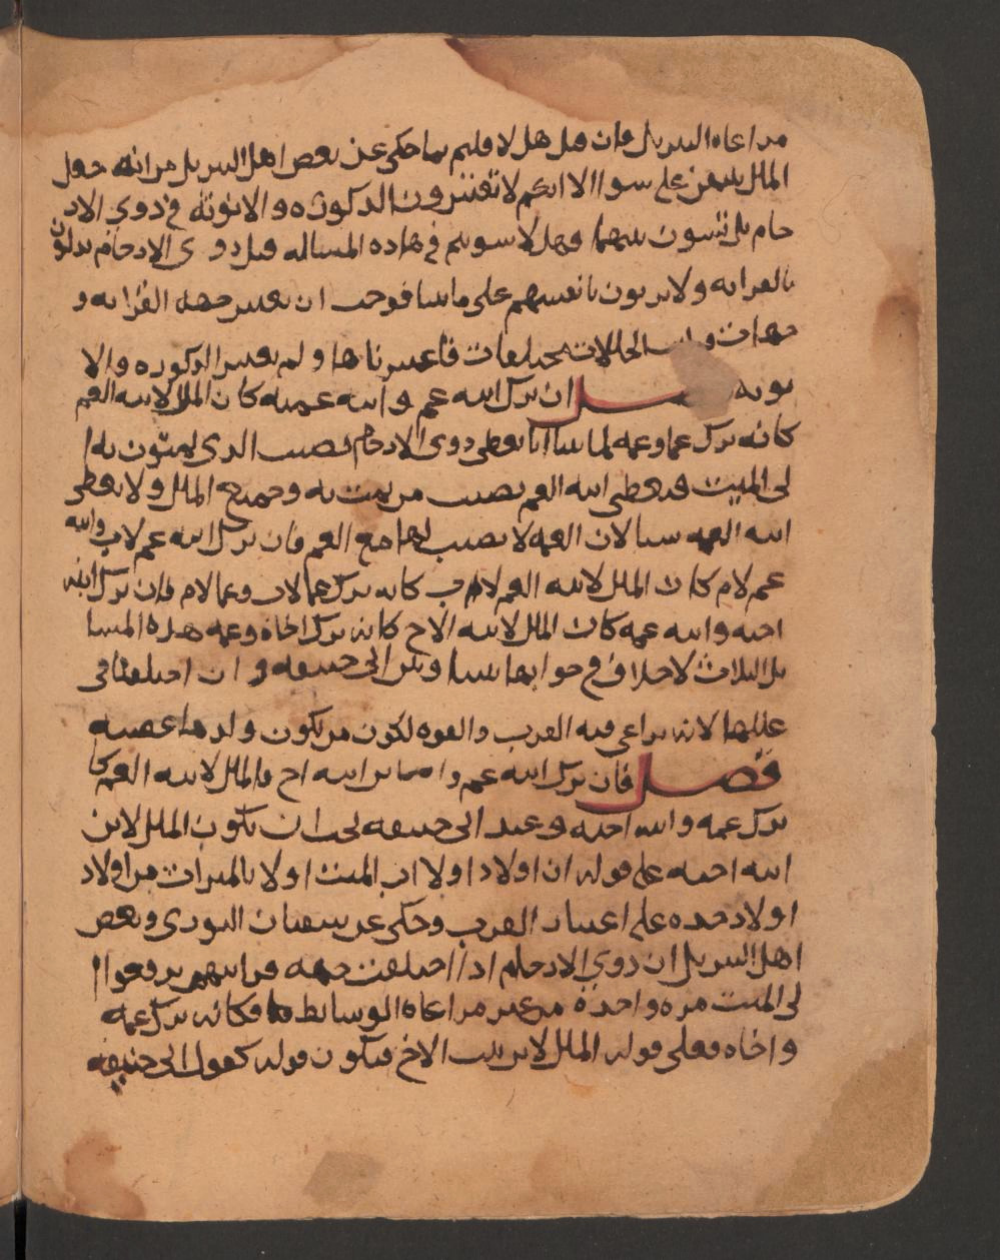 مراعاه التنزيل فان قيل هل لا قلتم بما حكى عن بعض اهل التنزيل من انه جعل
المال بينهن على سوا الا انكم لا تعتبرون الذكوره والانوثة في ذوي الار
حام بل تسوون بينهما فهل لا سويتم في هاذه المساله قيل ذوي الارحام يدلون
بالقرابه ولا يرثون بانفسهم على ما بينا فوجب ان يعتبر جهه القرابه و
جهات الحالات مختلفات فاعتبرناها ولم يعتبر الذكوره والا
نوثه ان ترك ابنه عم وابنه عمه كان المال لابنه العم
كانه ترك عما وعمه لما بينا انا نعطي ذوي الارحام نصيب الذي يمتون به ا
لى الميت فيعطى ابنه العم نصيب من يمت به وجميع المال ولا يعطى
ابنه العمه شيا لان العمه لا نصيب لها مع العم فان ترك ابنه عم لاب وابنه
عم لام كان المال لابنه العم لاب كانه ترك عما لاب وعما لام فان ترك ابنه
اخيه وابنه عمه كان المال لابنه الاخ كانه ترك اخاه وعمه هذه المسا
يل الثلاث لا خلاف في جوابها بيننا وبين ابي حنيفه و ان اختلفنا في
عللها لانه يراعي فيه القرب والقوه لكون من يكون ولدها عصبه
فصل فان ترك ابنه عم وابنه ابن اخ فالمال لابنه العم كا
ترك عمه وابن اخيه وعند ابي حنيفه يجب ان يكون المال لابن
ابنه اخيه على قوله ان اولاد اولاد اب الميت اولا بالميراث من اولاد
اولاد جده على اعتبار القرب وحكى عن سفيان الثوري وبعض
اهل التنزيل ان ذوي الارحام اذا اختلفت جهه قرابتهم يرفعوا ا
لى الميت مره واحدة من غير مراعاه الوسايط فكانه ترك عمه
واخاه فعلى قوله المال لابن بنت الاخ فيكون قوله كقول ابي حنيفه